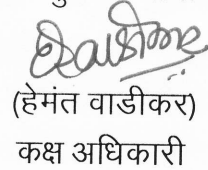 (हेमंत वाडीकर)
कक्ष अधिकारी